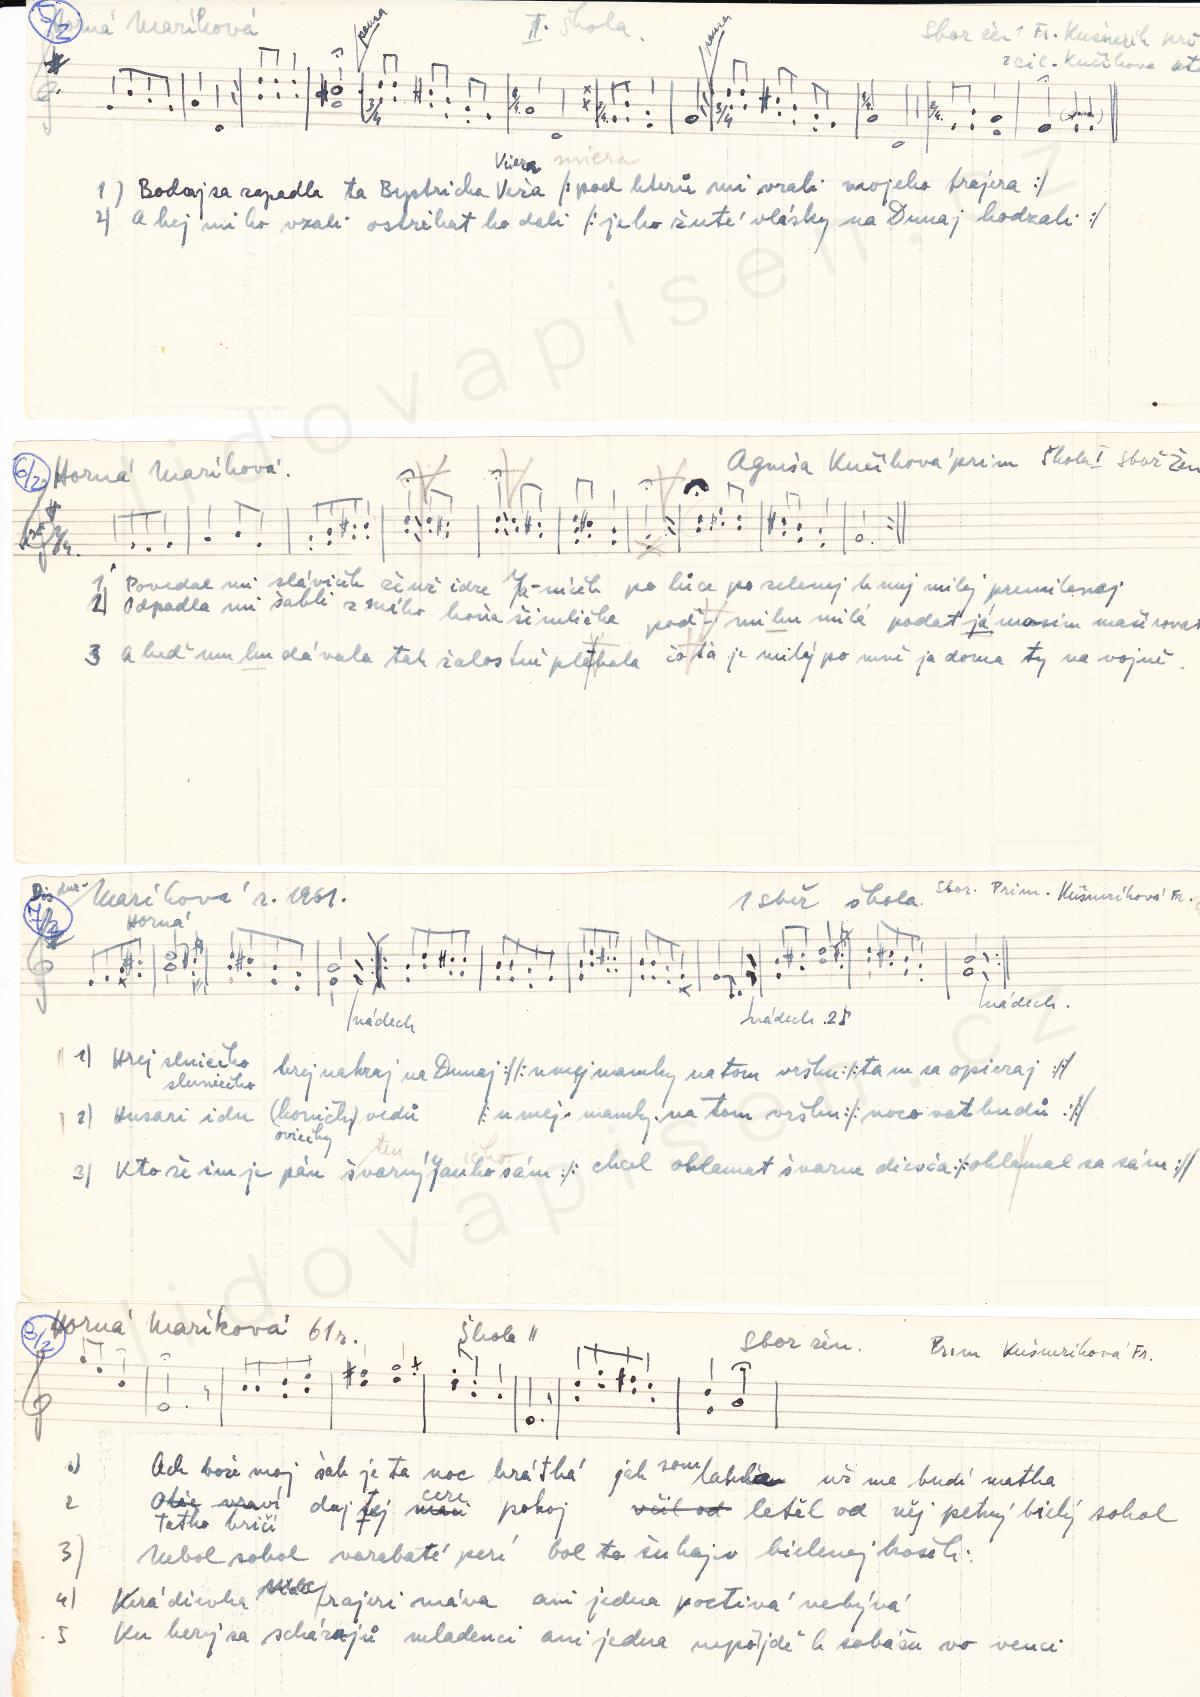 5/2
Horná Maríková
II. škola.
Sbor žen 1 Fr. Kušnerík
pauza
pauza
Viera miera
1) Bodaj sa zapadla ta Bystricka Veža /: pod kterú mi vzali mojeho frajera :/
2) A hej mi ho vzali ostrihat ho dali /: jeho žuté vlásky na Dunaj hodzali :/
6/2
Horná Maríková.
Agneša Kučíková prim Škola I sbor žen
1) Povedal mi slávičék že už idze Ja-níčék po lúce po zelenej k mej milej premilenej
2) Odpadla mi šabli z mého koňa šimlíčka podz mi hu milá podat já mosím mašírovat
3 A keď mu hu dávala tak žalostně plakala čo ťa je milý po mně ja doma ty na vojně.
Dis dur
7/2
Maríková r. 1961.
Horná
1 sběr škola. Sbor. Prim. Kušneríková Fr.
nádech
nádech 2x
nádech.
1) Hrej slniečko hrej na kraj na Dunaj :/: u mej mamky na tom vršku :/: ta m sa opieraj :/
sluniečko
2) Husari idu (koníčky) vedú /: u mej mamky na tom vršku :/: nocovat budú :/
ovečky
3) Kto že im je pán švarný Janko sám :/: chcel oklamat švarne dievča :/: oklamal sa sám :/
8/2
Horná Maríková 61 r.
Škola II
Sbor žen.
Prim Kušneríková Fr.
1) Ach bože moj šak je ta noc krátká jak som lahla už ma budí matka
2 Otec vraví daj tej mari cere pokoj včil od letěl od něj pekný bielý sokol
Tatko kričí
3) Nebol sokol varabaté perí bol to šuhaj v bielenej košeli.
4) Kerá dievka frajeri máva ani jedna poctivá nebývá
5 Ku kerej sa scházajú mladenci ani jedna nepojdě k sobášu vo venci
lidovapisen.cz
lidovapisen.cz